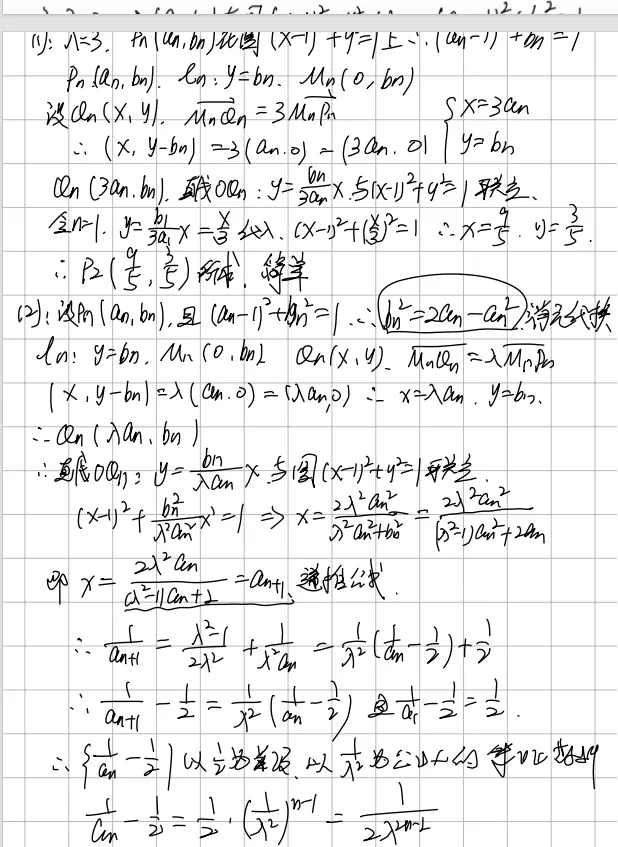 (1): λ=3. Pn(an,bn)在圆(x-1)²+y²=1上∴(an-1)²+bn²=1
Pn(an,bn). ln:y=bn. Mn(0,bn)
设Qn(x,y). MnQn=3MnPn { x=3an
∴(x,y-bn)=3(an.0)=(3an.0) y=bn
Qn(3an.bn). 直线OQn:y=bn/3an x.与(x-1)²+y²=1联立.
令n=1. y=b1/3a1 x=x/3代入. (x-1)²+(x/3)²=1 ∴x=9/5. y=3/5.
∴P2(9/5,3/5)所求.
(2):设Pn(an,bn),且(an-1)²+bn²=1.∴bn²=2an-an².消元代换
ln:y=bn. Mn(0,bn) Qn(x,y). MnQn=λMnPn
(x,y-bn)=λ(an.0)=(λan,0) ∴x=λan.y=bn.
∴Qn(λan,bn)
∴直线OQn:y=bn/λan x.与圆(x-1)²+y²=1联立.
(x-1)²+bn²/λ²an² x²=1 ⇒ x=2λ²an²/λ²an²+bn²=2λ²an²/(λ²-1)an²+2an
即x=2λ²an/(λ²-1)an+2=an+1.递推公式.
∴1/an+1=λ²-1/2λ²+1/λ²an=1/λ²(1/an-1/2)+1/2
∴1/an+1-1/2=1/λ²(1/an-1/2)且1/a1-1/2=1/2.
∴{1/an-1/2}以1/2为首项.以1/λ²为公比的等比数列
1/an-1/2=1/2·(1/λ²)ⁿ⁻¹=1/2λ²ⁿ⁻²